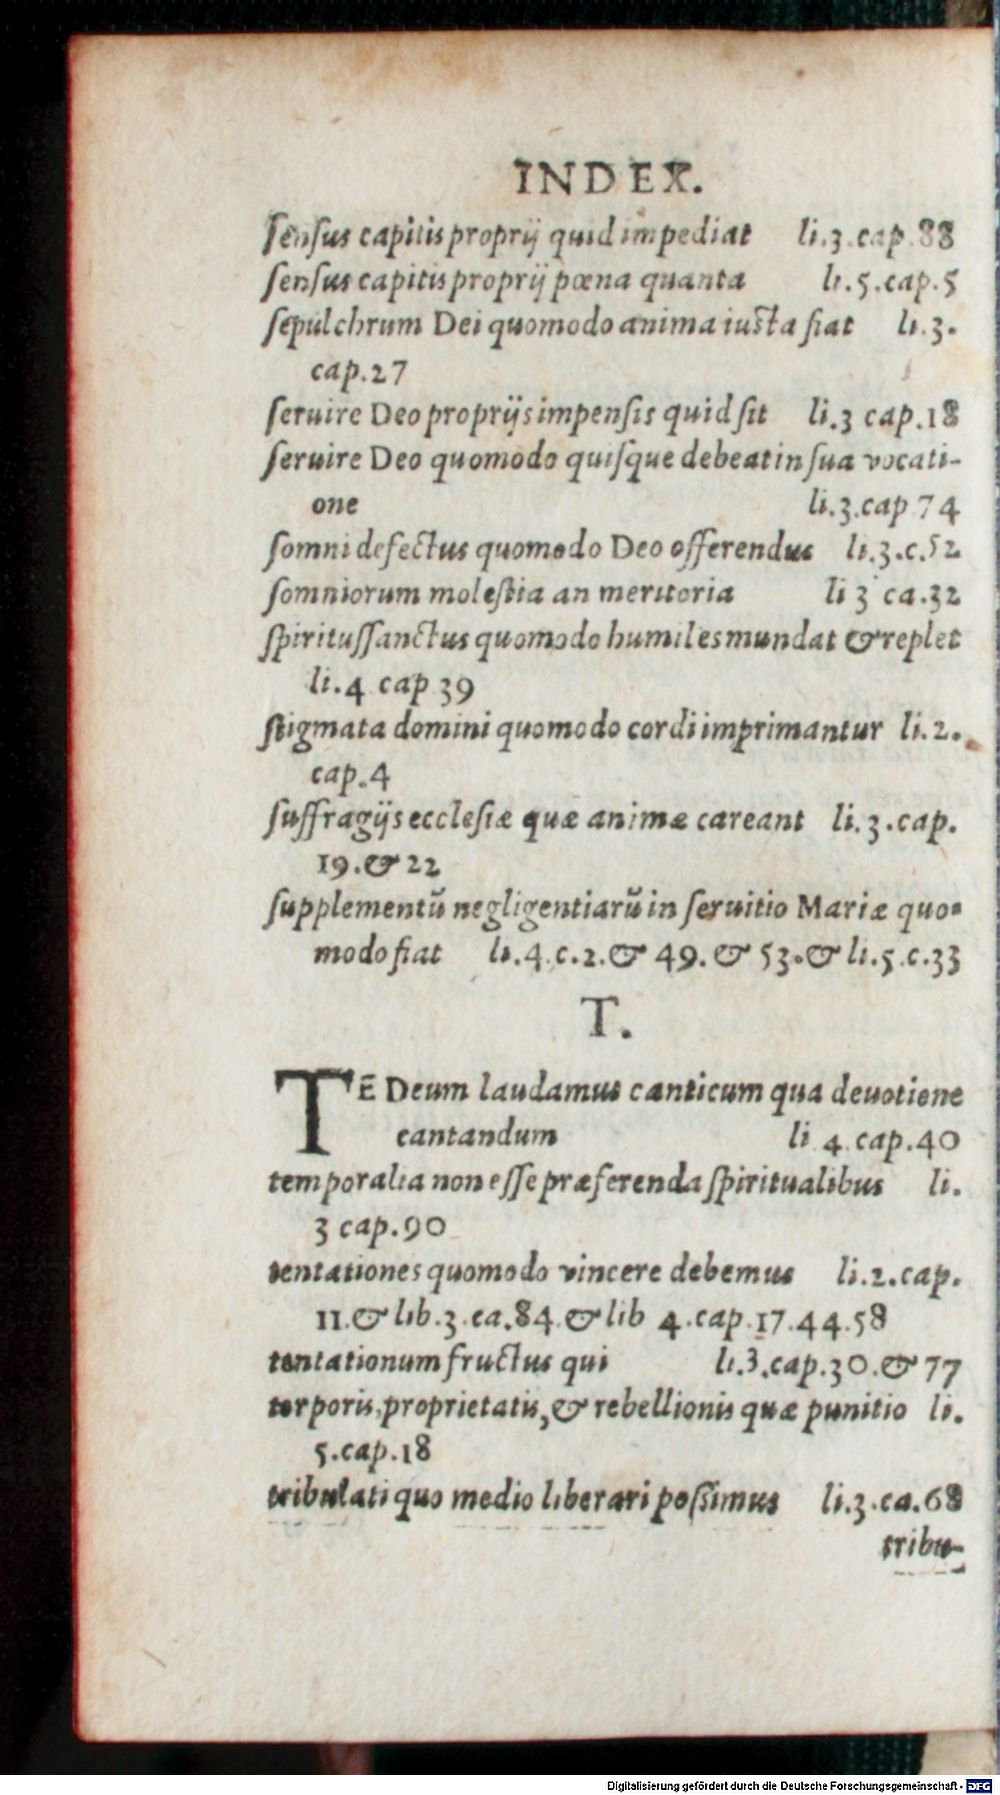 INDEX.
sensus capitis proprij quid impediat li.3.cap.88
sensus capitis proprij pœna quanta li.5.cap.5
sepulchrum Dei quomodo anima iusta fiat li.3.
cap.27
seruire Deo proprijs impensis quid sit li.3 cap.18
seruire Deo quomodo quisque debeat in sua vocati-
one li.3.cap 74
somni defectus quomodo Deo offerendus li.3.c.52
somniorum molestia an meritoria li 3 ca.32
spiritussanctus quomodo humiles mundat & replet
li.4 cap 39
stigmata domini quomodo cordi imprimantur li.2.
cap.4
suffragijs ecclesiæ quæ animæ careant li.3.cap.
19.& 22
supplementũ negligentiarũ in seruitio Mariæ quo-
modo fiat li.4.c.2.& 49.& 53.& li.5.c.33
T.
TE Deum laudamus canticum qua deuotione
cantandum li 4 cap.40
temporalia non esse præferenda spiritualibus li.
3 cap.90
tentationes quomodo vincere debemus li.2.cap.
11.& lib.3.ca.84.& lib 4.cap.17.44.58
tentationum fructus qui li.3.cap.30.& 77
torporis, proprietatis, & rebellionis quæ punitio li.
5.cap.18
tribulati quo medio liberari possimus li.3.ca.68
tribu-
Digitalisierung gefördert durch die Deutsche Forschungsgemeinschaft - DFG